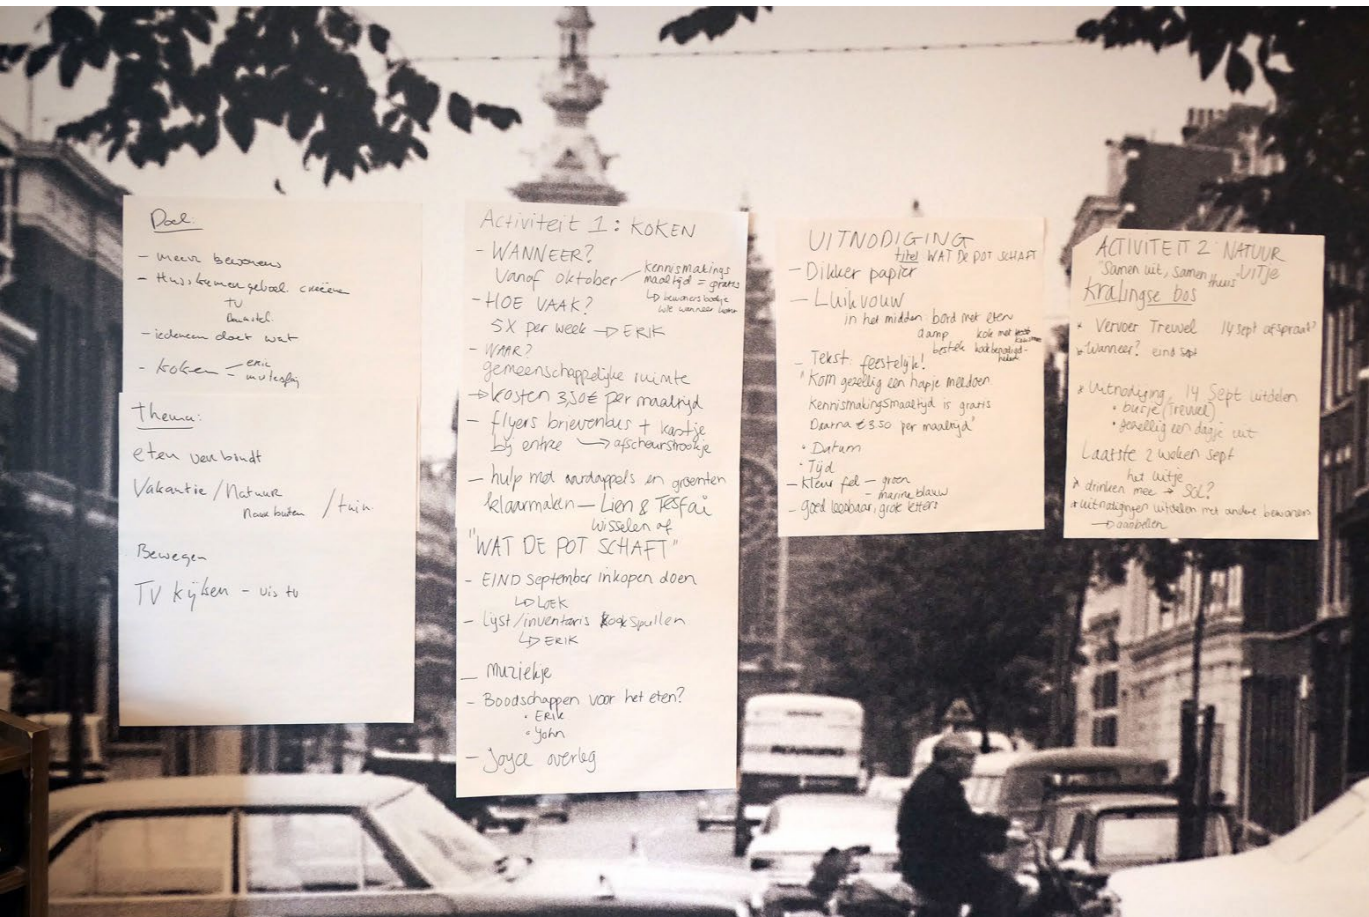 Doel:
- meer bewoners
- Huiskamergevoel creëren
TV
- iedereen doet wat
- koken - eric
Thema:
eten verbindt
Vakantie/Natuur
Naar buiten / tuin
Bewegen
TV kijken - vis tv
Activiteit 1: KOKEN
- WANNEER?
Vanaf oktober
kennismakings
maaltijd = gratis
↳ bewoners boekje
wie wanneer
- HOE VAAK?
5X per week → ERIK
- WAAR?
gemeenschappelijke ruimte
→ kosten 3,50€ per maaltijd
- flyers brievenbus + kastje
bij entree → afscheurstrookje
- hulp met aardappels en groenten
klaarmaken - Lien & Tesfai
wisselen af
"WAT DE POT SCHAFT"
- EIND september inkopen doen
↳ LOEK
- Lijst/inventaris kookspullen
↳ ERIK
- muziekje
- Boodschappen voor het eten?
• ERIK
• John
- Joyce overleg
UITNODIGING
titel WAT DE POT SCHAFT
- Dikker papier
- Luikvouw
in het midden: bord met eten
damp
bestek
- Tekst: feestelijk!
"Kom gezellig een hapje meedoen.
Kennismakingsmaaltijd is gratis
Daarna € 3.50 per maaltijd"
• Datum
• Tijd
- Kleur fel - groen
- marine blauw
- goed leesbaar, grote letters
ACTIVITEIT 2 NATUUR
UITJE
"Samen uit, samen thuis"
Kralingse bos
* Vervoer Treuvel 14 sept afspraak?
* Wanneer? eind sept
* Uitnodiging, 14 Sept uitdelen
• busje (Treuvel)
• gezellig een dagje uit
Laatste 2 weken sept
het uitje
* drinken mee → SOL?
* uitnodigingen uitdelen met andere bewoners
→ aanbellen